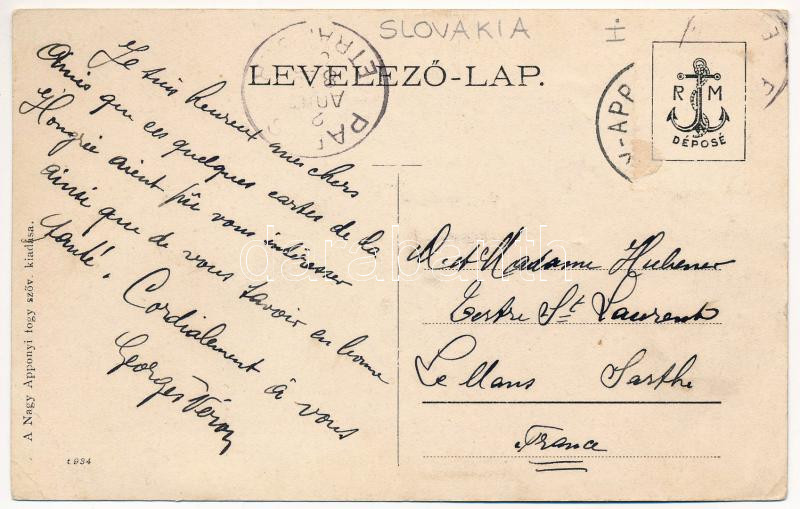 SLOVAKIA
LEVELEZŐ-LAP.
PAR
ETRA
-APP
R M
DÉPOSÉ
Je suis heureux mes chers
Amis que ces quelques cartes de la
Hongrie aient pû vous intéresser
ainsi que de vous savoir en bonne
santé. Cordialement à vous
Georges
M. et Madame Hubener
Tertre St Laurent
Le Mans Sarthe
France
A Nagy Apponyi fogy szöv. kiadása.
t 934
darabanth.com